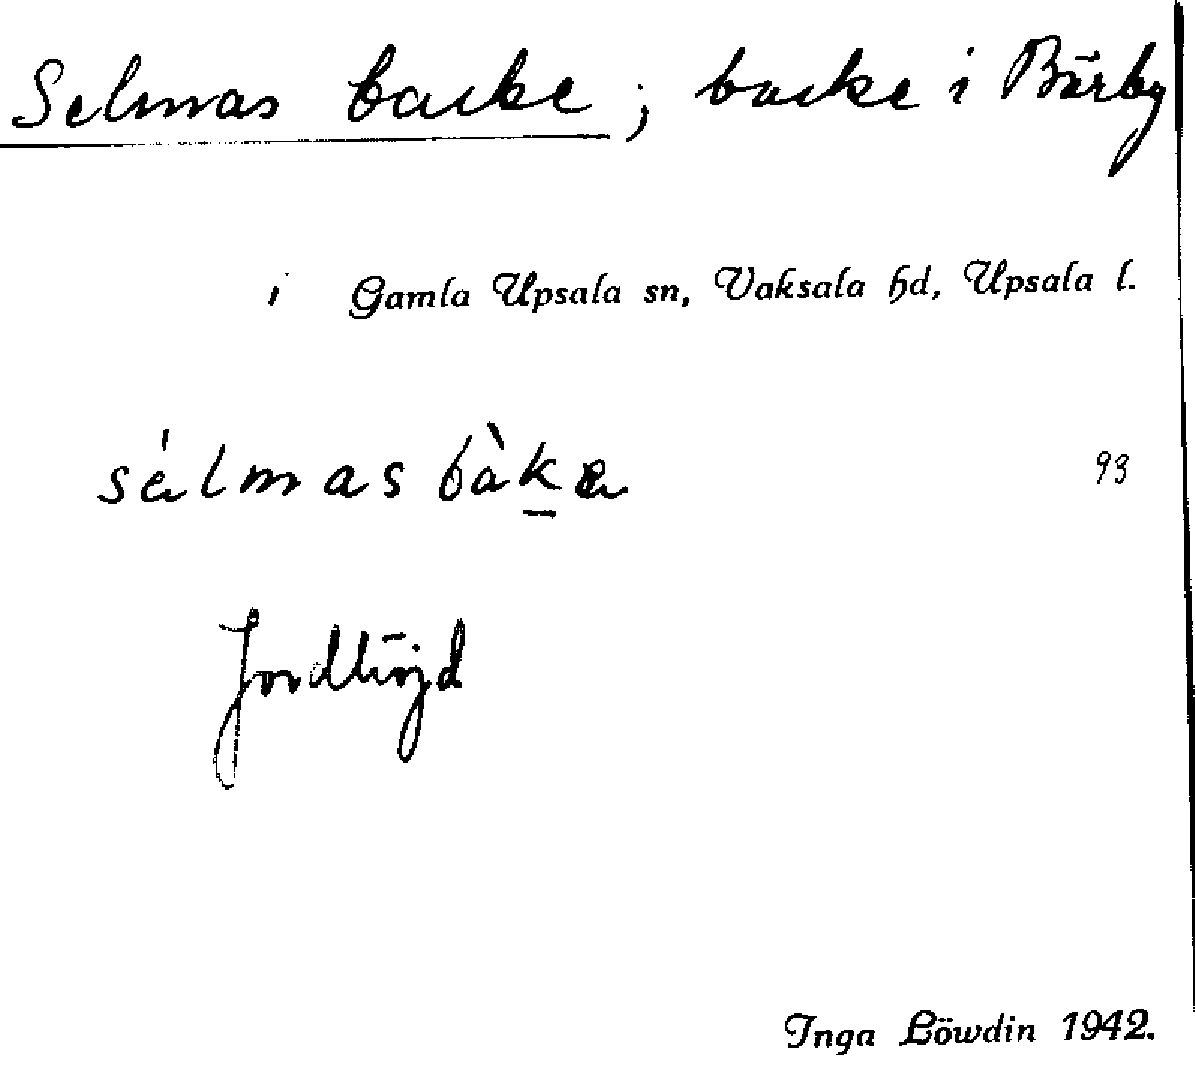 Selmas backe; backe i Bärby
i Gamla Upsala sn, Vaksala hd, Upsala l.
sélmas bàka 93
Jordhöjd
Inga Löwdin 1942.